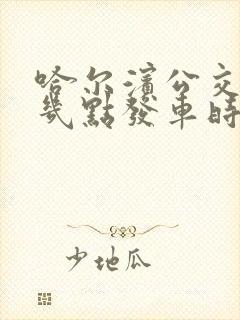 哈尔濱公交
幾點發車時
少地瓜